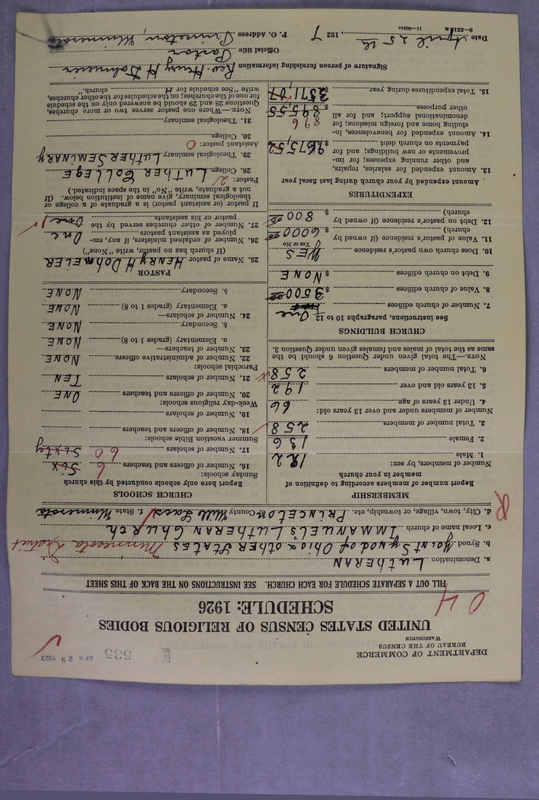 DEPARTMENT OF COMMERCE
BUREAU OF THE CENSUS
WASHINGTON
535
APR 29 1927
UNITED STATES CENSUS OF RELIGIOUS BODIES
SCHEDULE: 1926
04
FILL OUT A SEPARATE SCHEDULE FOR EACH CHURCH. SEE INSTRUCTIONS ON THE BACK OF THIS SHEET
a. Denomination LUTHERAN
b. Synod Joint Synod of Ohio & other STATES Minnesota District
c. Local name of church IMMANUEL'S LUTHERAN CHURCH
d. City, town, village, or township, etc. PRINCETON County Mille Lacs State Minnesota
R
MEMBERSHIP
Report number of members according to definition of member in your church
Number of members, by sex:
1. Male 122
2. Female 136
3. Total number of members 258
Number of members under and over 13 years old:
4. Under 13 years of age 66
5. 13 years old and over 192
6. Total number of members 258
NOTE.—The total given under Question 6 should be the same as the total of males and females given under Question 3.
CHURCH BUILDINGS
See instructions, paragraphs 10 to 12
7. Number of church edifices One
8. Value of church edifices $ 3500.00
9. Debt on church edifices $ NONE
10. Does church own pastor's residence YES
Yes or No
11. Value of pastor's residence (if owned by church) $ 6000.00
12. Debt on pastor's residence (if owned by church) $ 800.00
EXPENDITURES
Amount expended by your church during last fiscal year
13. Amount expended for salaries, repairs, and other running expenses; for improvements or new buildings; and for payments on church debt
14. Amount expended for benevolences, including home and foreign missions; for denominational support; and for all other purposes 896
15. Total expenditures during year
CHURCH SCHOOLS
Report here only schools conducted by this church
Sunday schools:
16. Number of officers and teachers 6 Six
17. Number of scholars 60 Sixty
Summer vacation Bible schools:
18. Number of officers and teachers
19. Number of scholars
Week-day religious schools:
20. Number of officers and teachers ONE
21. Number of scholars TEN
Parochial schools:
22. Number of administrative officers NONE
23. Number of teachers—
a. Elementary (grades 1 to 8) NONE
b. Secondary NONE
24. Number of scholars—
a. Elementary (grades 1 to 8) NONE
b. Secondary NONE
PASTOR
25. Name of pastor HENRY H DOHMEIER
(If church has no pastor, write "None")
26. Number of ordained ministers, if any, employed as assistant pastors One
27. Number of other churches served by the pastor or his assistants One 1
If pastor (or assistant pastor) is a graduate of a college or theological seminary, give name of institution below. (If not a graduate, write "No," in the space indicated.)
Pastor: 2
28. College LUTHER COLLEGE
29. Theological seminary LUTHER SEMINARY
Assistant pastor: 0
30. College
31. Theological seminary
NOTE.—Where one pastor serves two or more churches, Questions 25 and 29 should be answered only on the schedule for one of the churches; on the schedules for the other churches, write "See schedule for church."
Signature of person furnishing information Rev Henry H Dohmeier
Official title Pastor
P. O. Address Princeton, Minnesota
Date April 25 th 1927